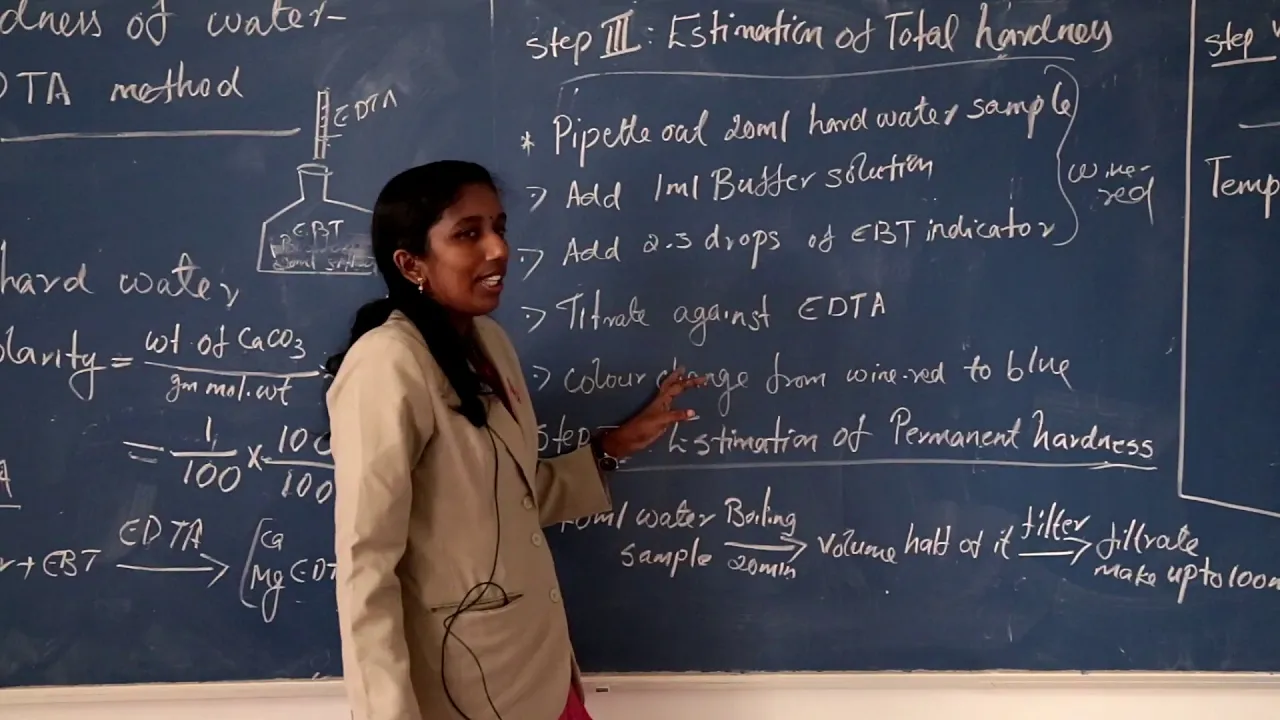 dness of water-
DTA method
EDTA
EBT
hard water
olarity = wt of CaCO3
gm mol.wt
= 1/100 × 100
100
r + EBT EDTA → [Ca
Mg EDT
Step III : Estimation of Total hardness
* Pipette out 20ml hard water sample
:> Add 1ml Buffer solution
:> Add 2.3 drops of EBT indicator
wine-
red
:> Titrate against EDTA
:> colour change from wine-red to blue
Step : Estimation of Permanent hardness
water Boiling volume half of it filter filtrate
sample 20min make up to 100m
step
Temp